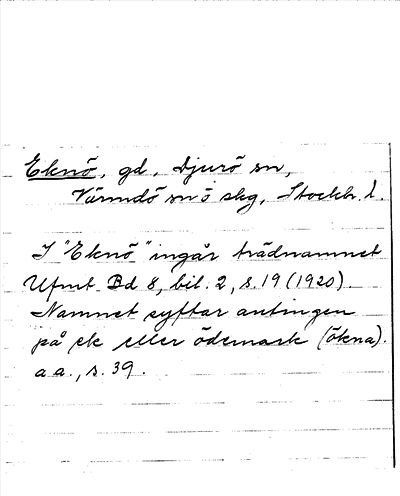 Eknö, gd, Djurö sn,
Värmdö sn ö skg, Stockh. l.
I "Eknö" ingår trädnamnet
Ufmt Bd 8, bil. 2, s. 19 (1920).
Namnet syftar antingen
på ek eller ödemark (ökna).
a a., s. 39.